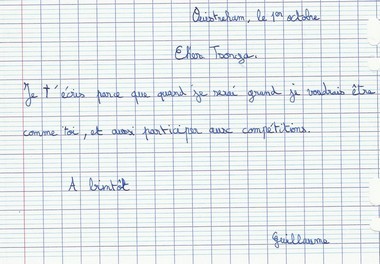 Ouistreham, le 1er octobre
Cher Tsonga.
Je t'écris parce que quand je serai grand je voudrais être
comme toi, et aussi participer aux compétitions.
A bientôt
Guillaume